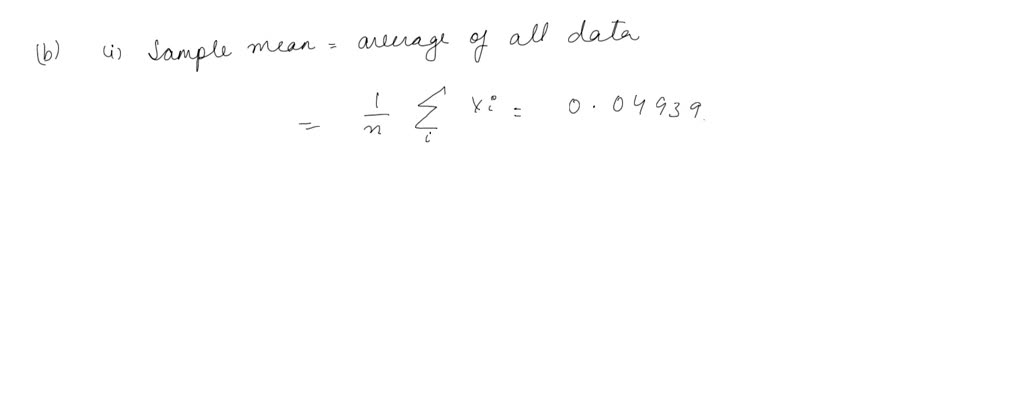 (b) (i) Sample mean = average of all data
= 1/n ∑i xi = 0.04939.